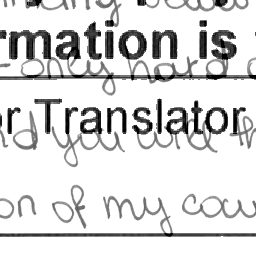 rmation is
only hard
or Translator
nd you will th
on of my cou